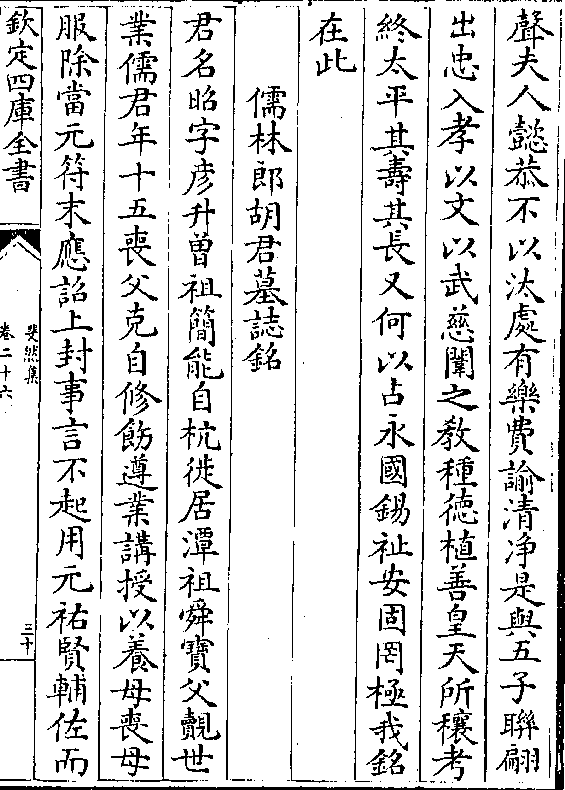 聲夫人懿恭不以汰處有樂費諭清淨是與五子聯翩
出忠入孝以文以武慈闈之教種德植善皇天所穰考
終太平其壽其長又何以占永國錫祉安固罔極我銘
在此
儒林郎胡君墓誌銘
君名昭字彦升曾祖簡能自杭徙居潭祖舜寶父覿世
業儒君年十五喪父克自修飭遵業講授以養母喪母
服除當元符末應詔上封事言不起用元祐賢輔佐而
欽定四庫全書
斐然集
卷二十六
三十